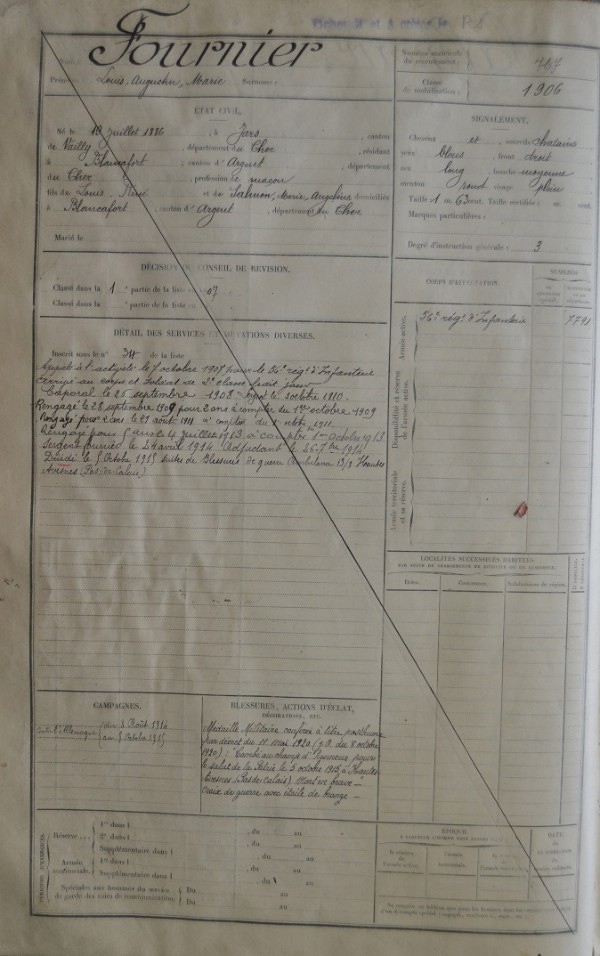 Fournier
Prénoms : Louis, Augustin, Marie Surnoms :
Numéro matricule du recrutement : 767
Classe de mobilisation : 1906
ÉTAT CIVIL.
Né le 18 juillet 1886, à Jars, canton
de Vailly, département du Cher, résidant
à Blancafort, canton d'Argent, département
du Cher, profession de maçon
fils de Louis, René et de Salmon, Marie, Angelina domiciliés
à Blancafort, canton d'Argent, département du Cher
Marié le
SIGNALEMENT.
Cheveux et sourcils chatains
yeux bleus, front droit
nez long, bouche moyenne
menton rond visage plein
Taille 1 m. 63 cent. Taille rectifiée : m. cent.
Marques particulières :
Degré d'instruction générale : 3
DÉCISION DU CONSEIL DE REVISION.
Classé dans la 1 partie de la liste en 07
Classé dans la partie de la liste en
DÉTAIL DES SERVICES ET MUTATIONS DIVERSES.
Inscrit sous le n° 34 de la liste
Appelé à l'activité le 7 octobre 1907 pour le 56e régt d'Infanterie
arrivé au corps et soldat de 2e classe ledit jour
Caporal le 26 septembre 1908
Rengagé le 28 septembre 1909 pour 2 ans à compter du 1er octobre 1909
Rengagé pour 2 ans le 29 août 1911 à compter du 1er octobre 1911
Rengagé pour 5 ans le 4 juillet 1913 à compter 1er octobre 1913
Sergent fourrier le 24 avril 1914 Adjudant le 26 7bre 1914
Décédé le 5 Octobre 1915 suites de Blessures de guerre Ambulance 13/9 Avesnes (Pas-de-Calais)
CORPS D'AFFECTATION
NUMÉROS
Armée active.
56e régt d'Infanterie
Disponibilité et réserve de l'armée active.
Armée territoriale et sa réserve.
LOCALITÉS SUCCESSIVES HABITÉES
PAR SUITE DE CHANGEMENTS DE DOMICILE OU DE RÉSIDENCE.
Dates.
Communes.
Subdivisions de région.
CAMPAGNES.
contre l'Allemagne du 3 Août 1914
au 5 Octobre 1915
BLESSURES, ACTIONS D'ÉCLAT,
DÉCORATIONS, ETC.
Médaille Militaire conférée à titre posthume
par décret du 11 mai 1920 (J.O. du 8 octobre
1920) : Tombé au champ d'honneur pour
le salut de la Patrie le 5 octobre 1915, à
Avesnes (Pas de Calais) Mort en brave
Croix de guerre avec étoile de bronze
PÉRIODES D'EXERCICES
Réserve
1re dans l , du au
2e dans l , du au
Supplémentaire dans l , du au
Armée territoriale.
1re dans l , du au
Supplémentaire dans l , du au
Spéciales aux hommes du service
de garde des voies de communication.
Du au
Du au
ÉPOQUE
À LAQUELLE L'HOMME DOIT PASSER DANS
la réserve de l'armée active.
l'armée territoriale.
DATE
DE LA LIBÉRATION